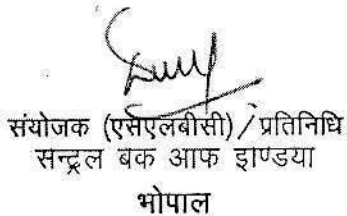 संयोजक (एसएलबीसी) / प्रतिनिधि
सन्ट्रल बक आफ इण्डिया
भोपाल